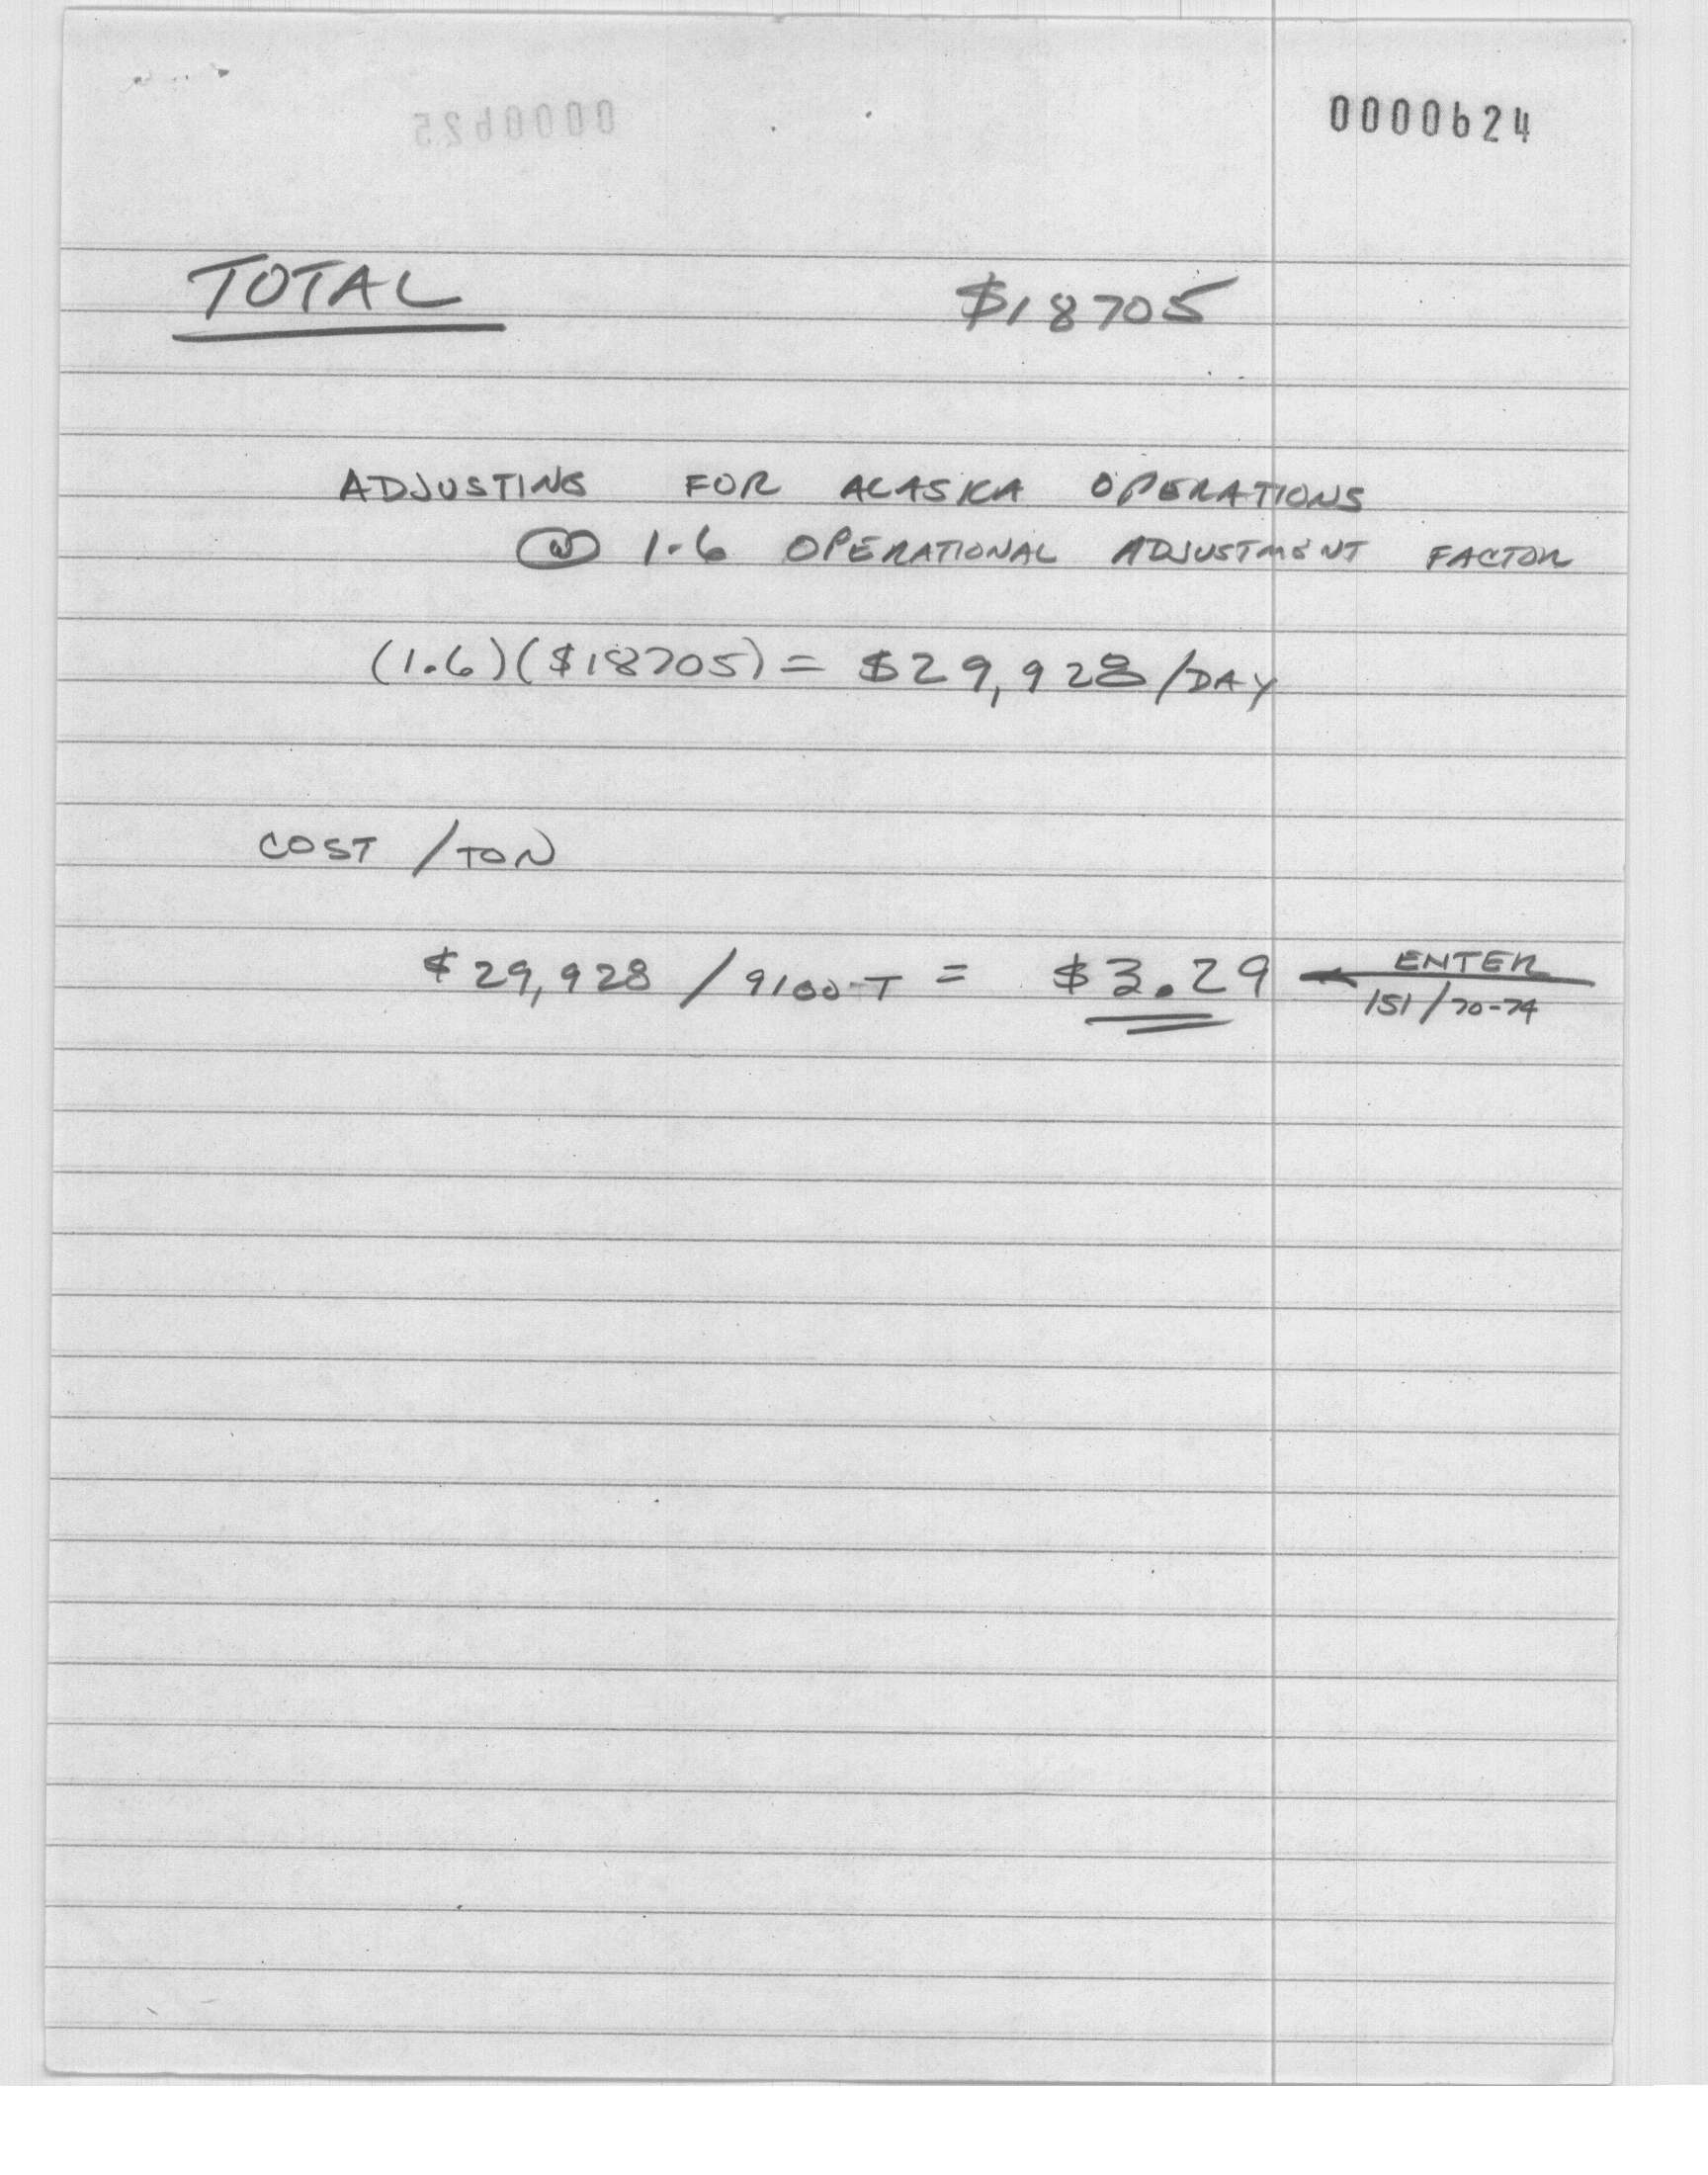 0000625
0000624
TOTAL $18705
ADJUSTING FOR ALASKA OPERATIONS
@ 1.6 OPERATIONAL ADJUSTMENT FACTOR
(1.6)($18705) = $29,928/DAY
COST /TON
$29,928 / 9100-T = $3.29 ENTER
151/70-74